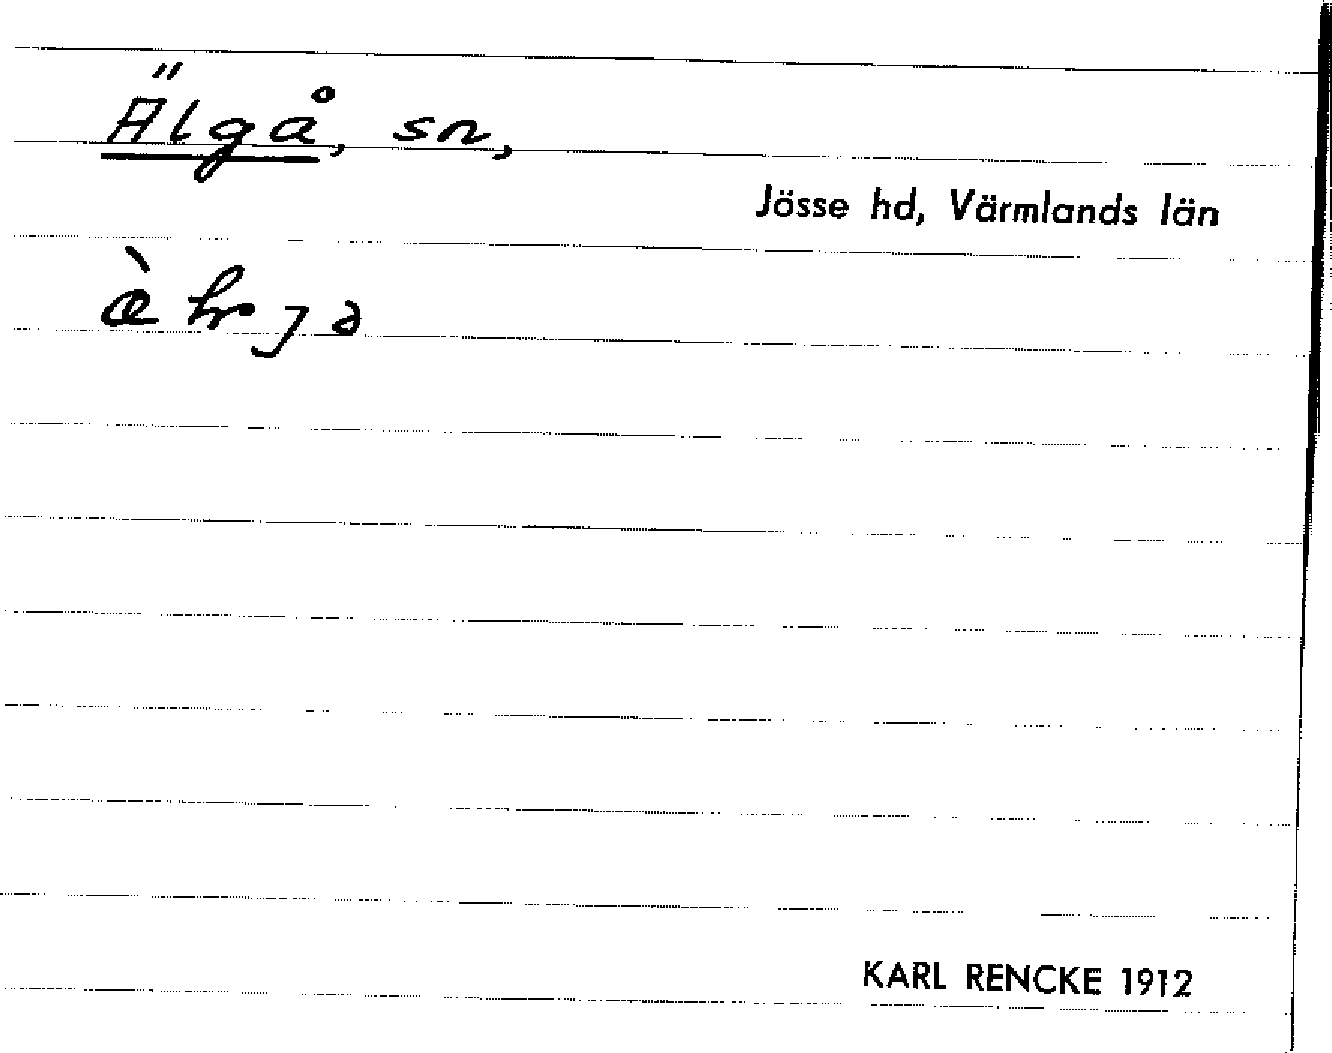 Älgå, sn,
Jösse hd, Värmlands län
KARL RENCKE 1912